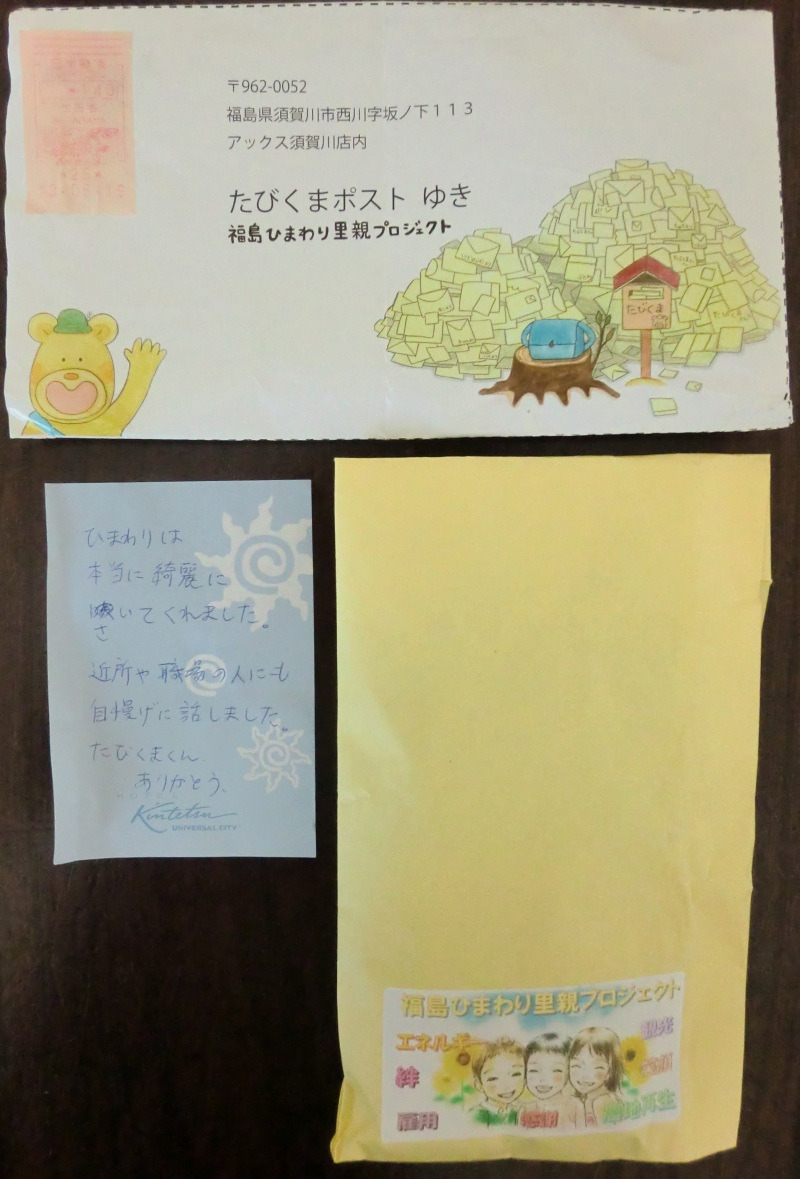 〒962-0052
福島県須賀川市西川字坂ノ下113
アックス須賀川店内
たびくまポスト ゆき
福島ひまわり里親プロジェクト
たびくま
ひまわりは
本当に綺麗に
さいてくれました。
近所や職場の人にも
自慢げに話しました。
たびくまくん
ありがとう、
HOTEL
Kintetsu
UNIVERSAL CITY
福島ひまわり里親プロジェクト
エネルギー
観光
絆
雇用
感謝
農地再生